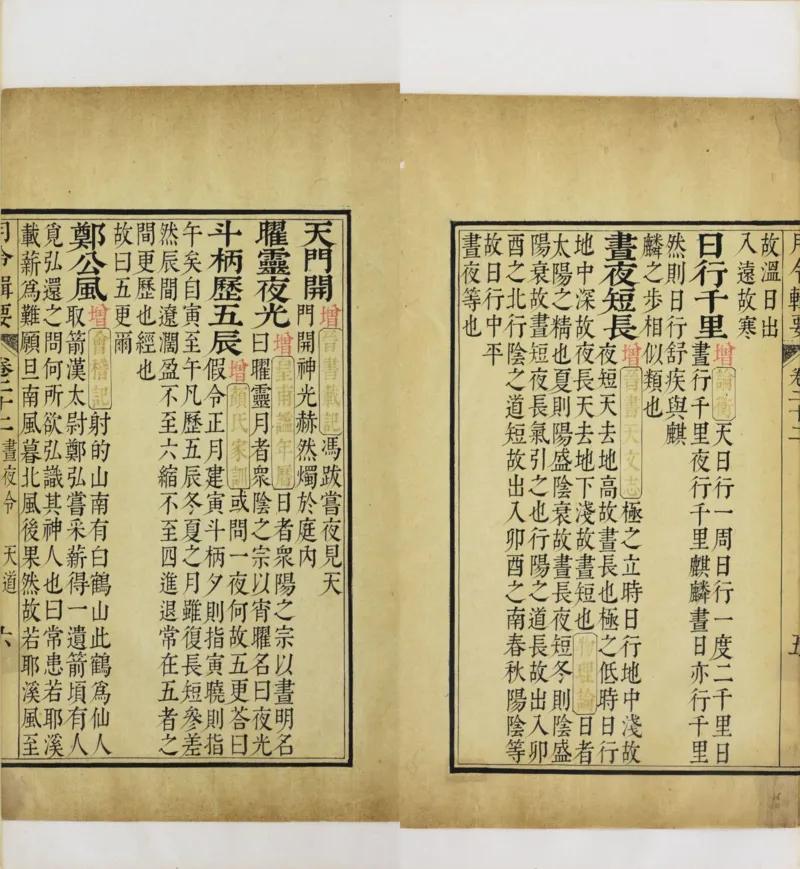 月令輯要 卷二十二 五
故溫日出
入遠故寒
日行千里 增 論衡 天日行一周日行一度二千里日
晝行千里夜行千里麒麟晝日亦行千里
然則日行舒疾與麒
麟之步相似類也
晝夜短長 增 晉書天文志 極之立時日行地中淺故
夜短天去地高故晝長也極之低時日行
地中深故夜長天去地下淺故晝短也 物理論 日者
太陽之精也夏則陽盛陰衰故晝長夜短冬則陰盛
陽衰故晝短夜長氣引之也行陽之道長故出入卯
酉之北行陰之道短故出入卯酉之南春秋陽陰等
故日行中平
晝夜等也
天門開 增 晉書載記 馮跋嘗夜見天
門開神光赫然燭於庭內
曜靈夜光 增 皇甫謐年曆 日者衆陽之宗以晝明名
曰曜靈月者衆陰之宗以宵曜名曰夜光
斗柄歷五辰 增 顏氏家訓 或問一夜何故五更答曰
假令正月建寅斗柄夕則指寅曉則指
午矣自寅至午凡歷五辰冬夏之月雖復長短參差
然辰間遼濶盈不至六縮不至四進退常在五者之
間更歷也經也
故曰五更爾
鄭公風 增 會稽記 射的山南有白鶴山此鶴爲仙人
取箭漢太尉鄭弘嘗采薪得一遺箭頃有人
覓弘還之問何所欲弘識其神人也曰常患若耶溪
載薪爲難願旦南風暮北風後果然故若耶溪風至
月令輯要 卷二十二 晝夜令 天道 六